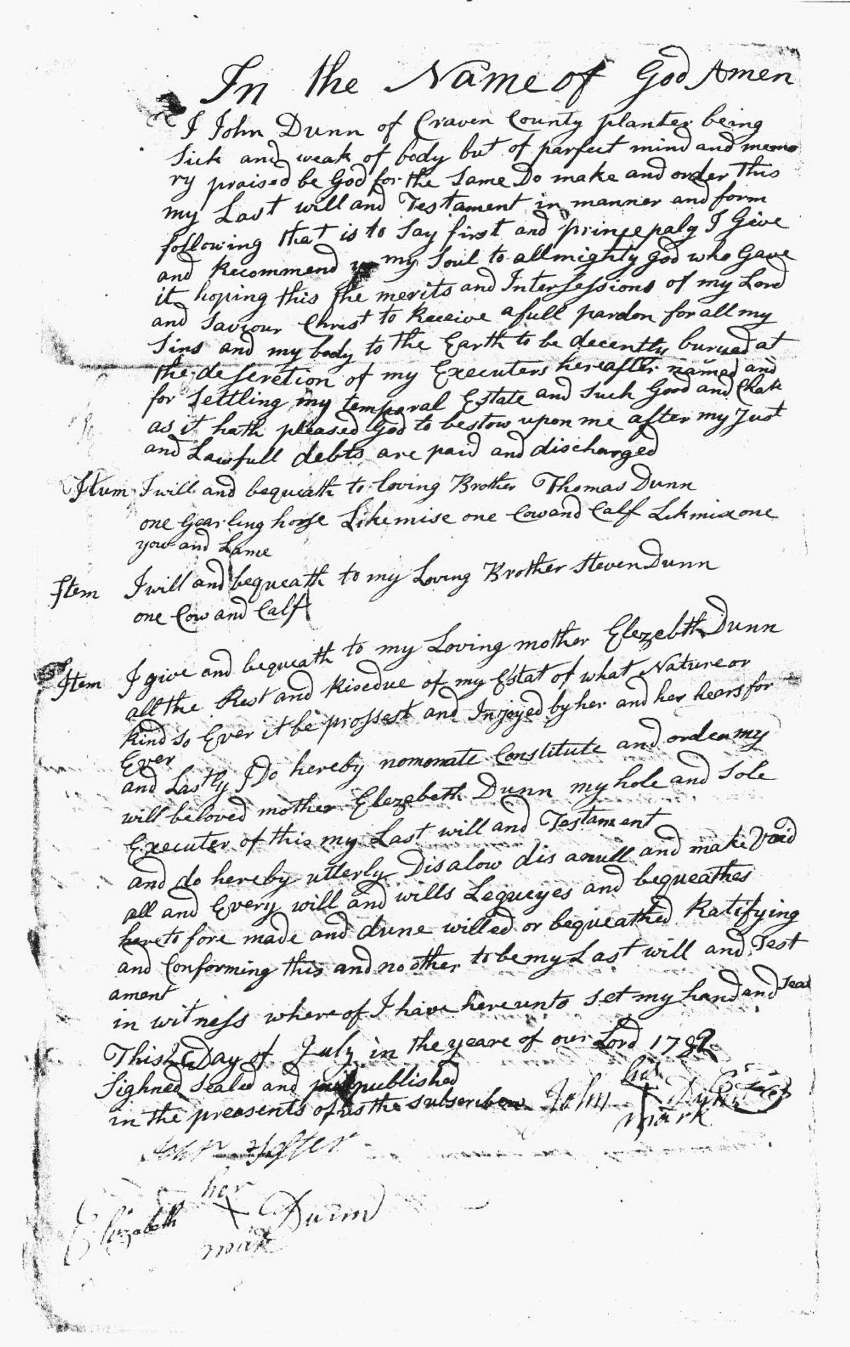 In the Name of God Amen
I John Dunn of Craven County planter being
Sick and weak of body but of parfect mind and memo
ry praised be God for the Same Do make and order this
my Last will and Testament in manner and form
following that is to Say first and princepaly I Give
and Recommend my Soul to allmighty God who Gave
it hoping this the merits and Intersessions of my Lord
and Saviour Christ to Receive a full pardon for all my
Sins and my body to the Earth to be decently buried at
the descretion of my Executers hereafter named and
for Settling my temporal Estate and Such Good and Chat
as it hath pleased God to bestow upon me after my Just
and Lawfull debts are paid and discharged
Itum I will and bequeath to loving Brother Thomas Dunn
one yearling horse Likewise one Cow and Calf Likwise one
yow and Lame
Item I will and bequeath to my Loving Brother Steven Dunn
one Cow and Calf
Item I give and bequeath to my Loving mother Elezebth Dunn
all the Rest and Risedue of my Estat of what Nature or
kind so Ever it be prossest and Injoyed by her and her hears for
Ever
and Lastly I Do hereby nomonate Constitute and ordea my
will beloved mother Elezebeth Dunn my hole and Sole
Executer of this my Last will and Testament
and do hereby utterly Disalow dis anull and make Void
all and Every will and wills Lequeyes and bequeathes
hereto fore made and dune willed or bequeathed Ratifying
and Conforming this and no other to be my Last will and Test
ament
in witness where of I have hereunto set my hand and Seal
This Day of July in the yeare of our Lord 1782
Sighned Sealed and published
in the preasents of us the subscribers John his mark
John
Elizabeth her mark Dunn